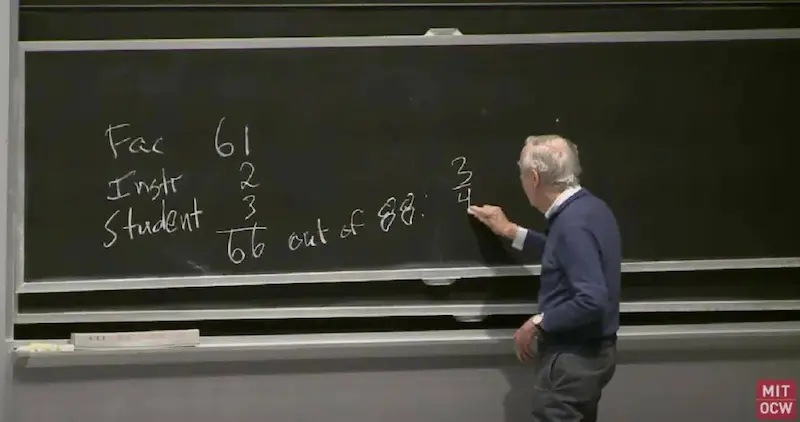 Fac 61
Instr 2
Student 3
66 out of 88: 3/4
MIT
OCW